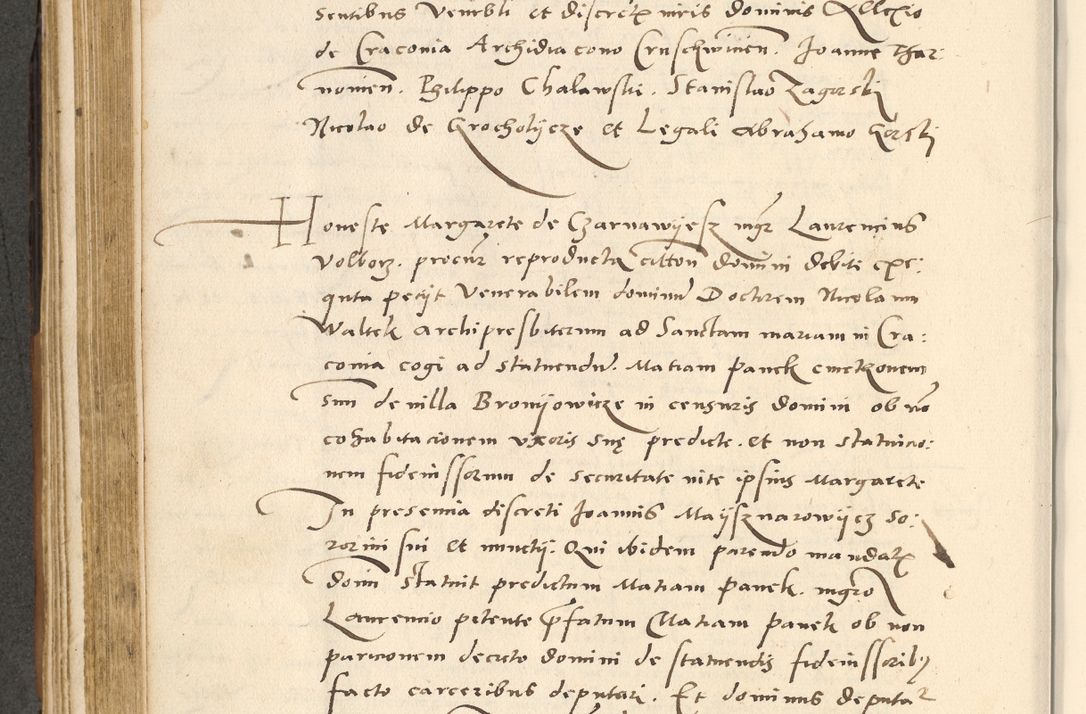 sentibus Venerbli et discretis viris dominis Allexio
de Craconia Archidiacono Cruschwinen. Joanne Thar:
nouien. Philippo Chalawski. Stanislao Zagorski
Nicolao de Grocholijcze et Legali Abrahamo Gorski
Honeste Margarete de Czarnawijesz mgr Laurencius
Volborz. procur reproducta citton domini debite exe:
quta petijt Venerabilem dominu Doctorem Nicolaum
Waltek archipresbiterum ad Sanctam mariam in Cra:
conia cogi ad statuendu. Matiam panek cmetzonem
suu de villa Bronijowicze in censuris domini ob no
cohabitacionem vxoris sue predicte. et non statuicio:
nem fideiussorum de securitate vite ipsius Margarete
In presencia discreti Joannis Maijsznarowijcz so:
rorini sui et nunctij. Qui ibidem parendo mandatis
domi statuit predictum Matiam panek. mgro
Laurencio petente pfatum Matiam panek ob non
paricionem decreto domini de statuendis fideiussoribus
facto carceribus deputari. Et dominus deputa